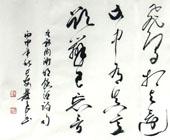 飛鳥相與還
此中有真意
欲辯已忘言
陶淵明飲酒詩